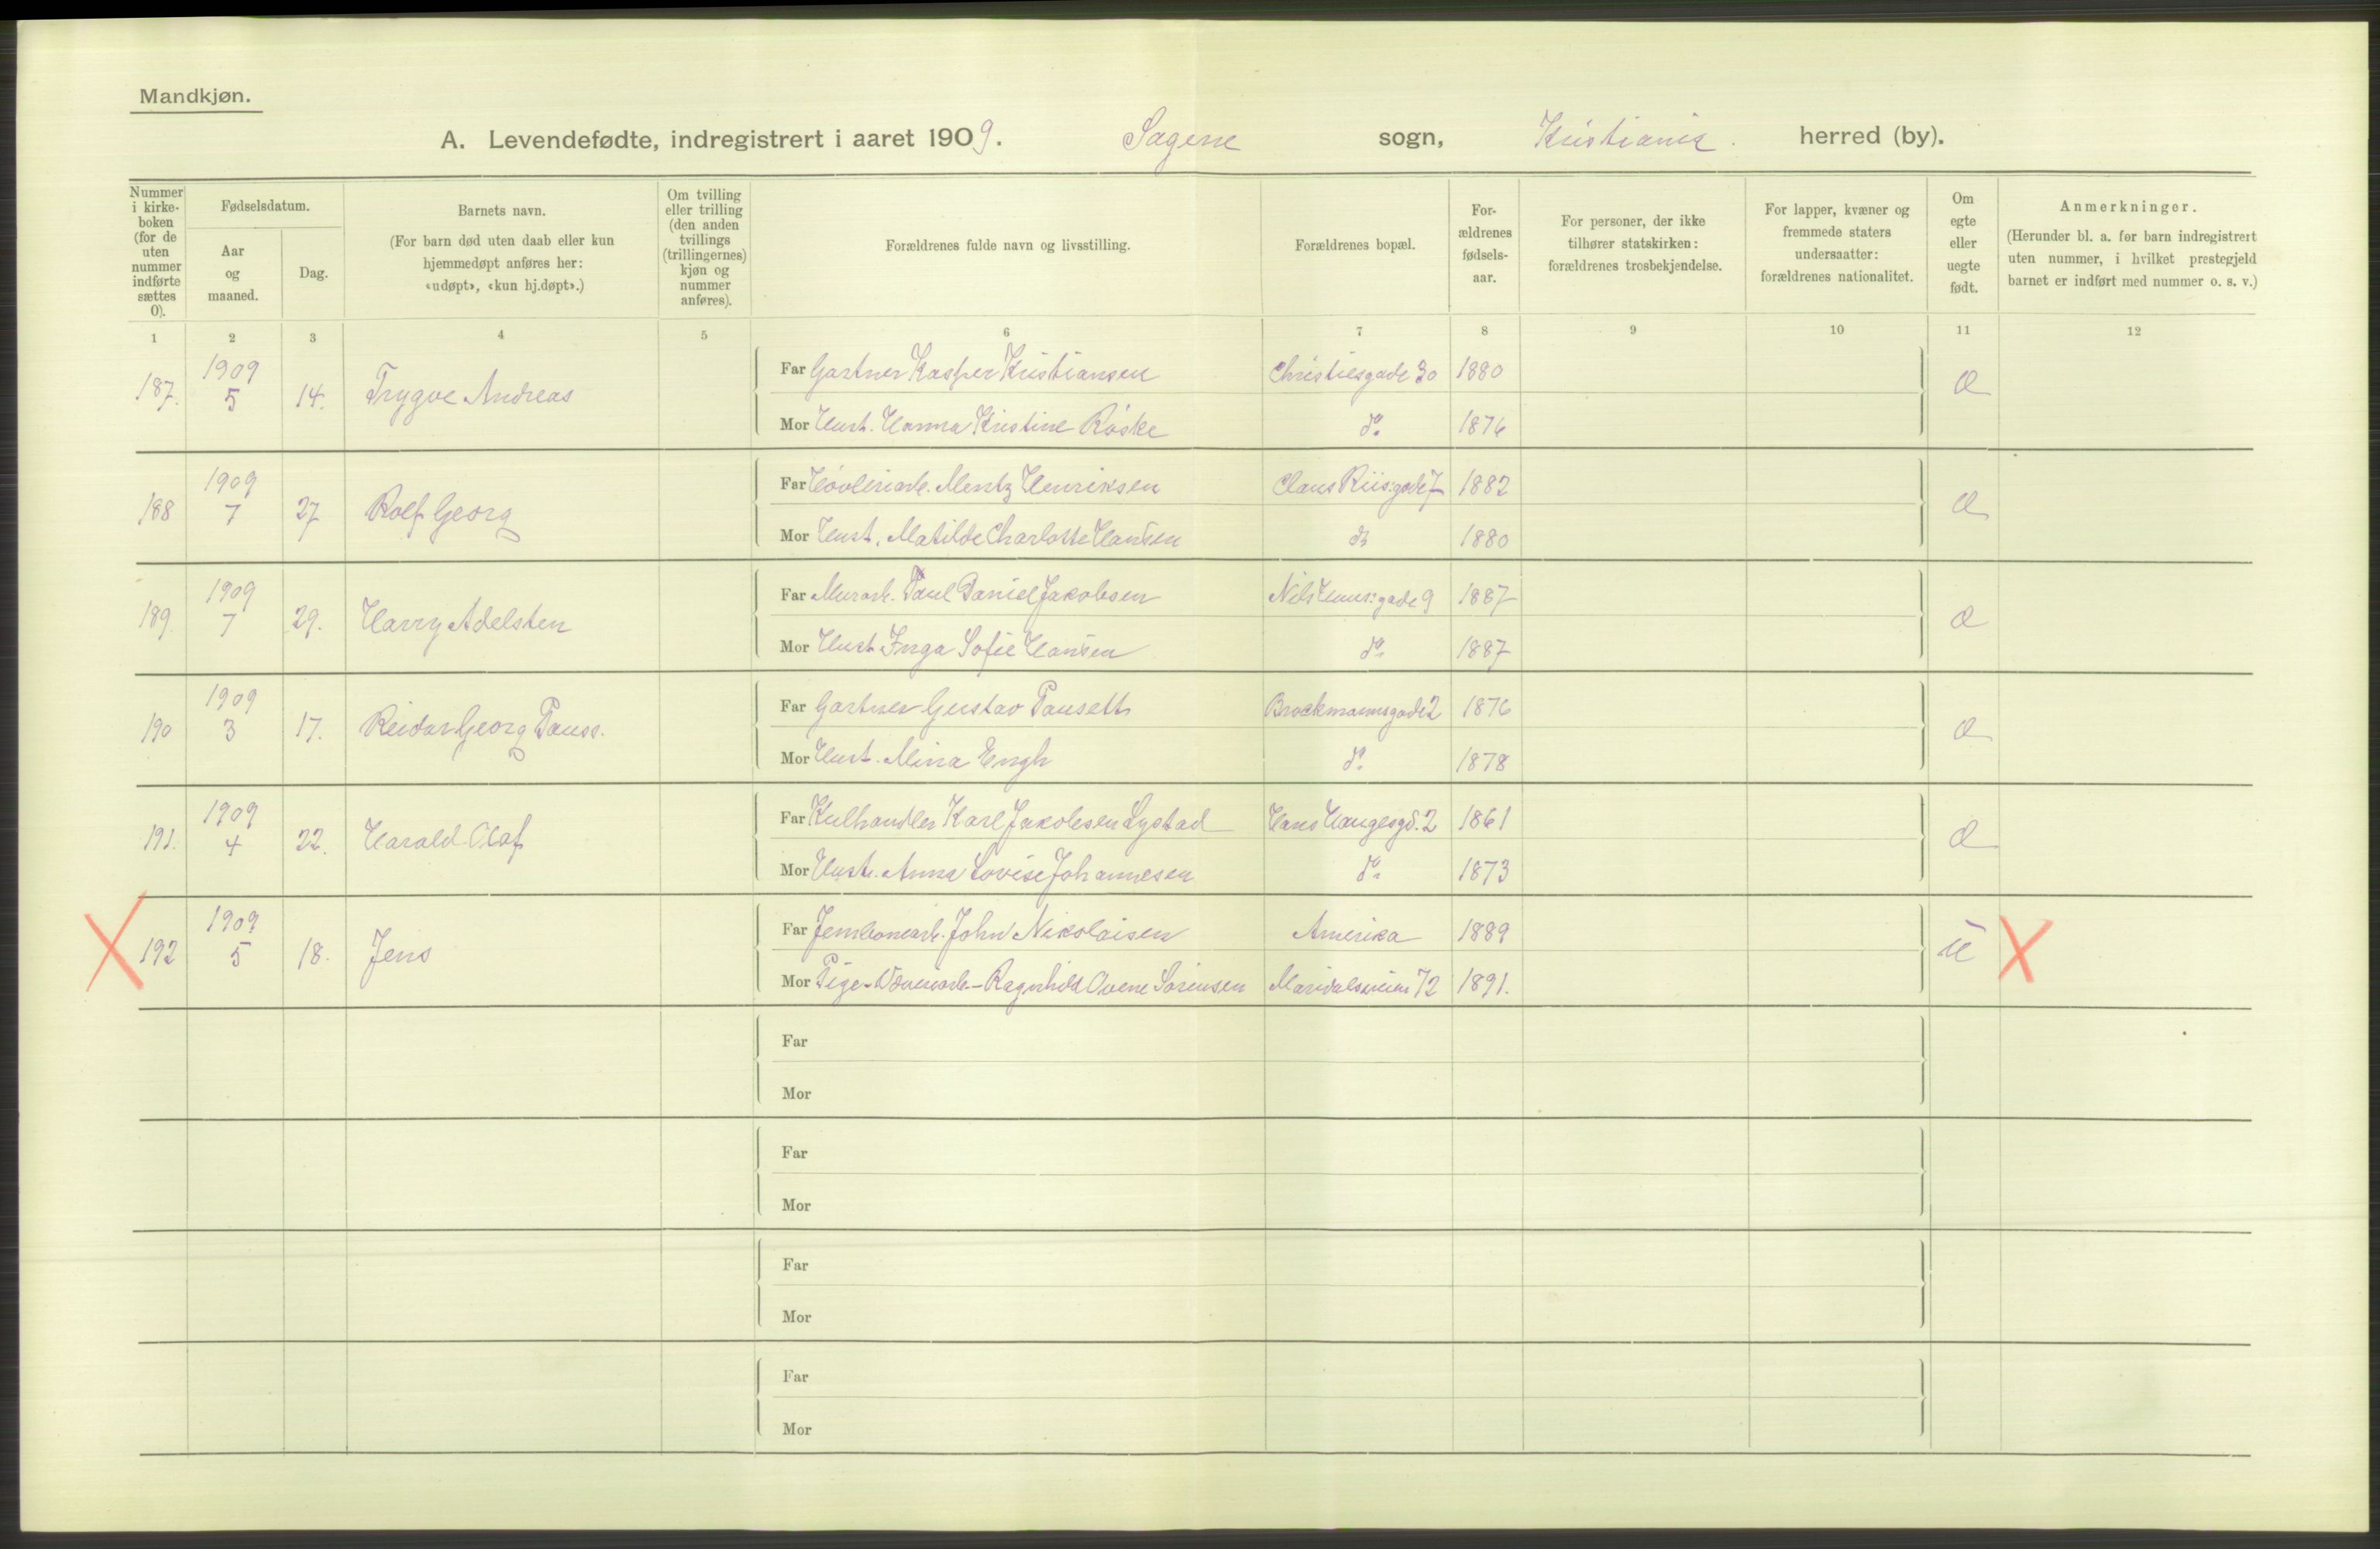 Mandkjøn.
A. Levendefødte, indregistrert i aaret 1909. Sagene sogn, Kristiania. herred (by).
Nummer i kirke-boken (for de uten nummer indførte sættes 0).
Fødselsdatum.
Aar og maaned.
Dag.
Barnets navn.
(For barn død uten daab eller kun hjemmedøpt anføres her: «udøpt», «kun hj.døpt».)
Om tvilling eller trilling (den anden tvillings (trillingernes) kjøn og nummer anføres).
Forældrenes fulde navn og livsstilling.
Forældrenes bopæl.
For-ældrenes fødsels-aar.
For personer, der ikke tilhører statskirken: forældrenes trosbekjendelse.
For lapper, kvæner og fremmede staters undersaatter: forældrenes nationalitet.
Om egte eller uegte født.
Anmerkninger.
(Herunder bl. a. for barn indregistrert uten nummer, i hvilket prestegjeld barnet er indført med nummer o. s. v.)
1 2 3 4 5 6 7 8 9 10 11 12
187. 1909 5 14. Trygve Andreas
Far Gartner Kasper Kristiansen Christiesgade 30 1880
Mor Hust. Hanna Kristine Röske do. 1876
188 1909 7 27 Rolf Georg
Far Høvleriarb. Mentz Henriksen Claus Riis:gade 7 1882
Mor Hust. Matilde Charlotte Hansen do 1880
189. 1909 7 29. Harry Adelsten
Far Murarb. Paul Daniel Jakobsen Nils Huus:gade 9 1887
Mor Hust. Inga Sofie Hansen do. 1887
190 1909 3 17. Reidar Georg Pauss.
Far Gartner Gustav Pausett Brockmannsgade 2 1876
Mor Hust. Mina Engh do. 1878
191. 1909 4 22. Harald Olaf
Far Kulhandler Karl Jakobsen Lystad Hans Haugesgd. 2 1861
Mor Hust. Anna Lovise Johannesen do. 1873
192 1909 5 18. Jens
Far Jernbanearb. John Nikolaisen Amerika 1889 u
Mor Pige - Væveriarb. - Ragnhild Ovene Sørensen Maridalsveien 72 1891.
Far
Mor
Far
Mor
Far
Mor
Far
Mor